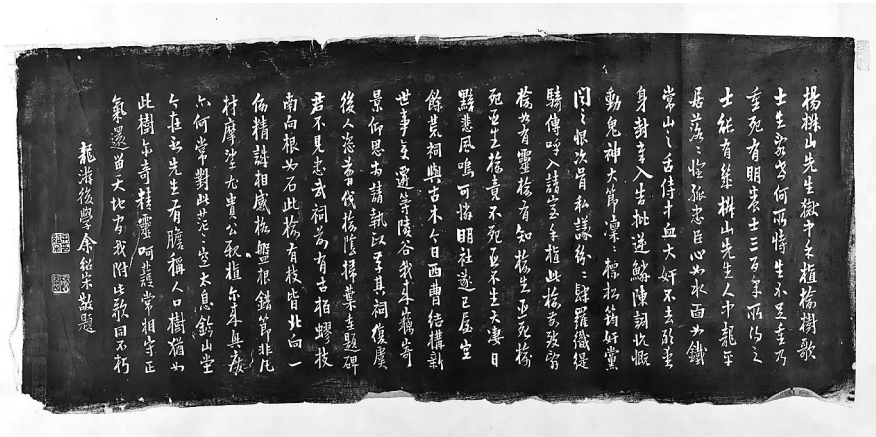 楊椒山先生獄中手植榆樹歌
士生當世何所恃生不足重乃
重死有明養士三百年所得之
士能有幾椒山先生人中龍平
居落落惟孤忠臣心如水面如鐵
常山之舌侍中血大奸不去願喪
身封章入告批逆鱗陳詞忼慨
動鬼神大節凜凜標松筠奸黨
聞之恨次骨私議紛紛肆羅織緹
騎傳呼入請室手植此榆前致辭
榆如有靈榆有知榆生吾死榆
死吾生榆竟不死吾不生天凄日
黯悲風鳴可憐明社遂已屋空
餘荒祠與古木今日西曹結構新
世事變遷等陵谷我來
景仰思古請執以其祠復虞
後人恣薪伐榆陰掃葉去題碑
君不見忠武祠前有古柏蟉枝
南向根如石此榆有枝皆北向一
例精誠相感格盤根錯節非凡
材摩挲尤貴公親植尔來興廢
亦何常對此茫茫空太息鈐山堂
今在否先生有膽稱人口樹猶如
此樹尔奇精靈呵護常相守正
氣還留天地宥我附此歌同不朽
龍游後學余紹宋敬題